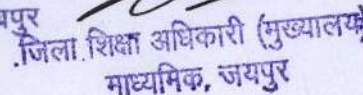 यपुर
.जिला शिक्षा अधिकारी (मुख्यालय)
माध्यमिक, जयपुर